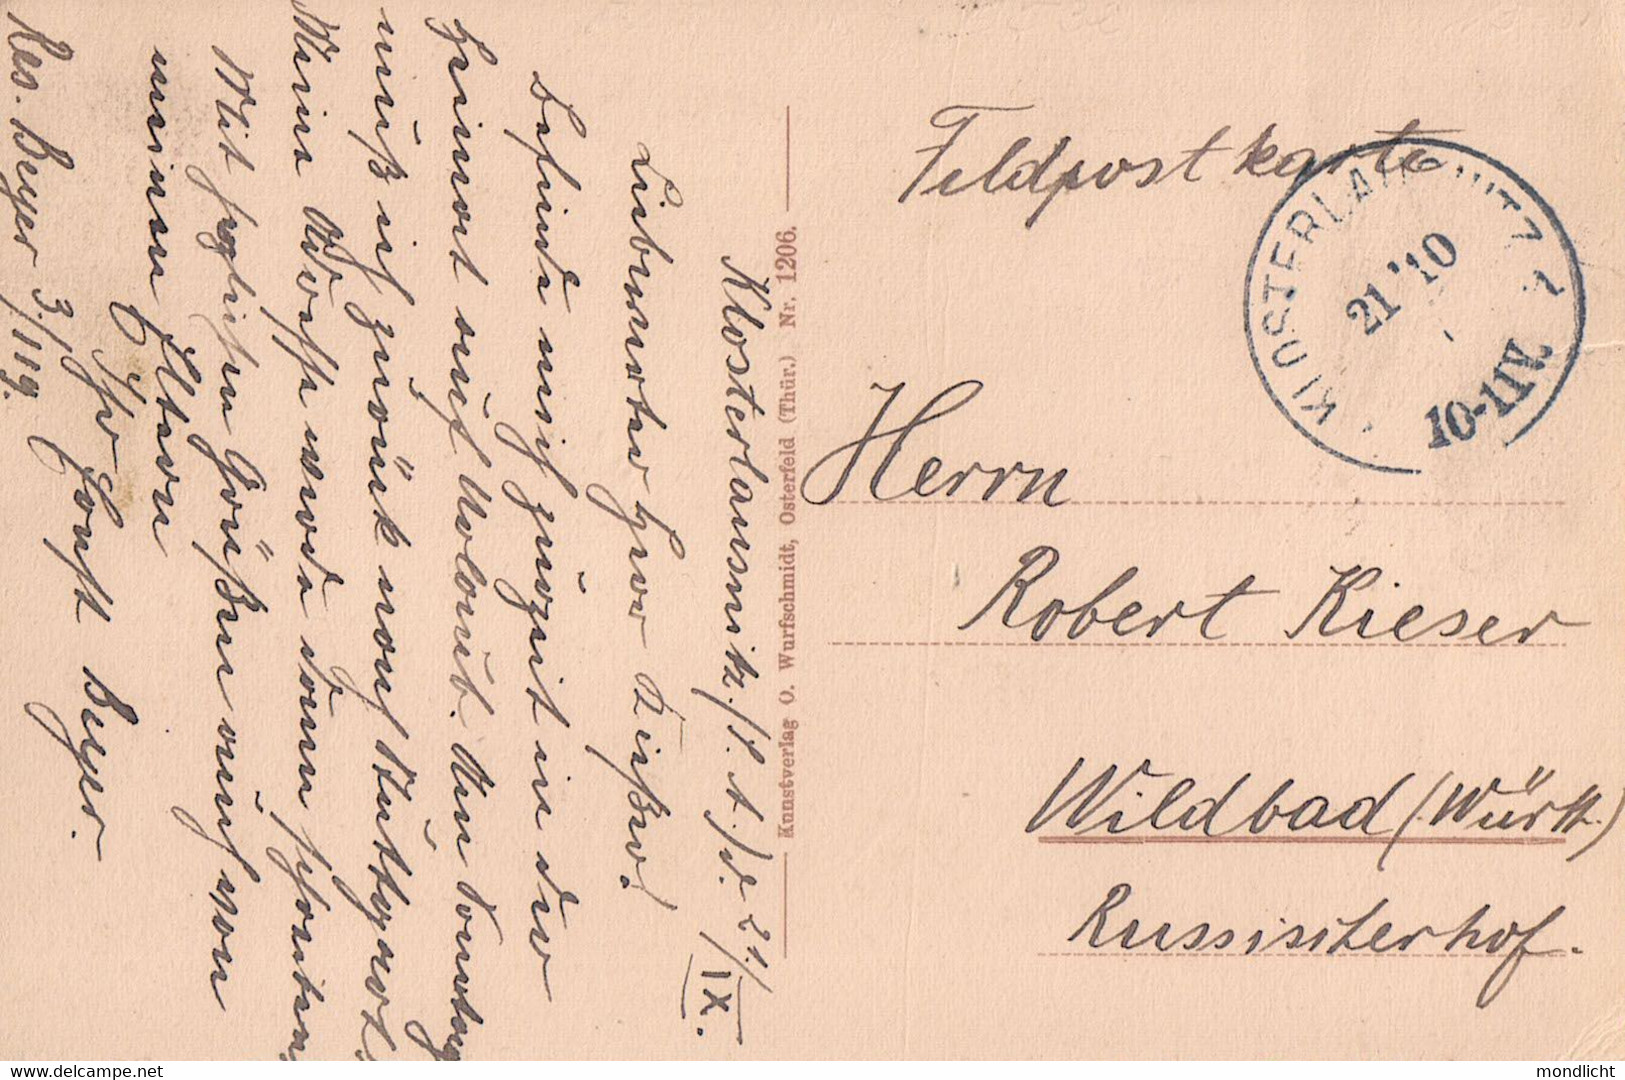 Feldpostkarte
KLOSTERLAUSNITZ
21 10
10-11V.
Herrn
Robert Kieser
Wildbad (Württ.)
Russischerhof.
Kunstverlag O. Wurfschmidt, Osterfeld (Thür.) Nr. 1206.
Klosterlausnitz./S. A./d. 21./IX.
Liebwerter Herr Kießer!
Befinde mich zurzeit in der
Heimat auf Urlaub. Am Sonntag
muß ich zurück nach
Meine Adresse werde dann schreiben
Mit herzlichen Grüßen auch von
meinen Eltern
Ihr Ernst Beyer.
Res. Beyer 3./119.
mondlicht